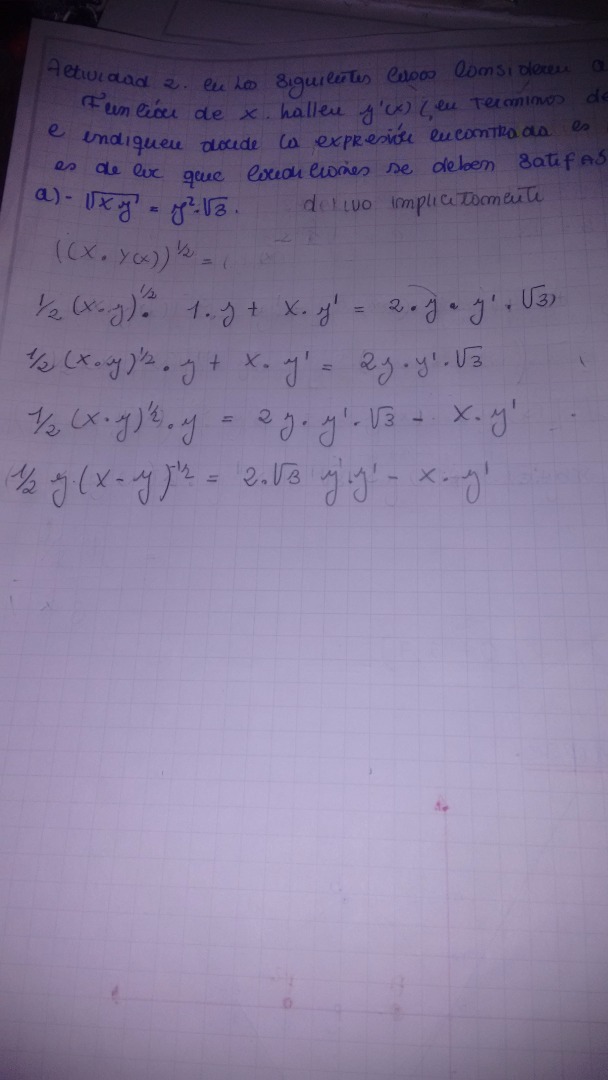 Actividad 2. en los siguientes casos consideren a
Función de x. hallen y'(x) (en terminos de
e indiquen donde la expresión encontrada es
es decir que condiciones se deben satifas
a)- √xy = y²·√3. derivo implicitamente
((x·y(x))^1/2 = (
1/2 (x·y)^1/2 · 1·y + x·y' = 2·y·y'·√3)
1/2 (x·y)^1/2 · y + x·y' = 2y·y'·√3
1/2 (x·y)^1/2 · y = 2y·y'·√3 - x·y'
(1/2 y·(x-y)^-1/2 = 2·√3 y·y' - x·y'